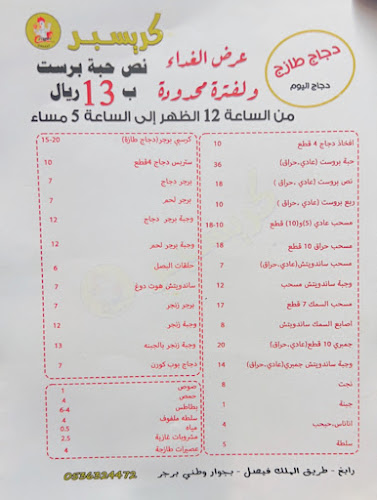 دجاج طازج
دجاج اليوم
عرض الغداء
ولفترة محدودة
كريسبر
نص حبة برست
ب 13 ريال
من الساعة 12 الظهر إلى الساعة 5 مساء
افخاذ دجاج 4 قطع 10
حبة بروست (عادي،حراق) 36
نص بروست (عادي ،حراق ) 18
ربع بروست (عادي ،حراق ) 10
مسحب عادي (5)و(10) قطع 10-18
مسحب حراق 10 قطع 18
مسحب ساندويتش(عادي،حراق) 7
وجبة ساندويتش مسحب 12
مسحب السمك 7 قطع 17
اصابع السمك ساندويتش 8
جمبري 10 قطع(عادي،حراق) 20
وجبة ساندويتش جمبري(عادي،حراق) 14
نجت 8
جبنة 1
اناناس،حبحب 4
سلطة 5
كرسي برجر(دجاج طازة) 15-20
ستربس دجاج 4قطع 10
برجر دجاج 7
برجر لحم 7
وجبة برجر دجاج 12
وجبة برجر لحم 12
حلقات البصل 6
ساندويتش هوت دوغ 7
برجر زنجر 7
وجبة زنجر 12
وجبة زنجر بالجبنه 13
دجاج بوب كورن 7
صوص 1
حمص 4
بطاطس 4-6
سلطه ملفوف 4
مياه 0.5
مشروبات غازية 2.5
عصيرات طازجة 4
رابغ - طريق الملك فيصل - بجوار وطني برجر
0536324472